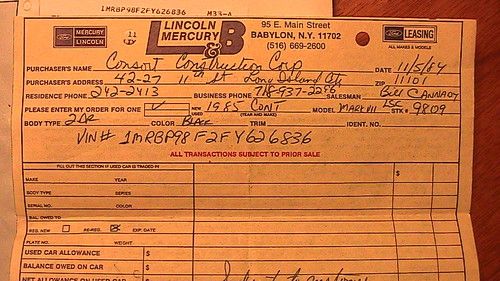 1MRBP98F2FY626836 M33-A
MERCURY LINCOLN
11
LINCOLN MERCURY L&B
95 E. Main Street
BABYLON, N.Y. 11702
(516) 669-2600
Ford LEASING
ALL MAKES & MODELS
PURCHASER'S NAME Consort Construction Corp DATE 11/5/84
PURCHASER'S ADDRESS 42-27 11th St Long Island City ZIP 11101
RESIDENCE PHONE 242-2413 BUSINESS PHONE 718-937-2246 SALESMAN Bill CANNADY
PLEASE ENTER MY ORDER FOR ONE ✓ NEW USED 1985 CONT (YEAR AND MAKE) MODEL MARK VII LSC STK# 9809
BODY TYPE 2DR COLOR BLACK TRIM IDENT. NO.
VIN# 1MRBP98F2FY626836
ALL TRANSACTIONS SUBJECT TO PRIOR SALE
FILL OUT THIS SECTION IF USED CAR IS TRADED IN
MAKE YEAR $
BODY TYPE SERIES
SERIAL NO. COLOR
BAL. OWED TO
REG. NEW RE-REG. EXP. DATE
PLATE NO. WEIGHT
USED CAR ALLOWANCE $
BALANCE OWED ON CAR $
NET ALLOWANCE ON USED CAR $